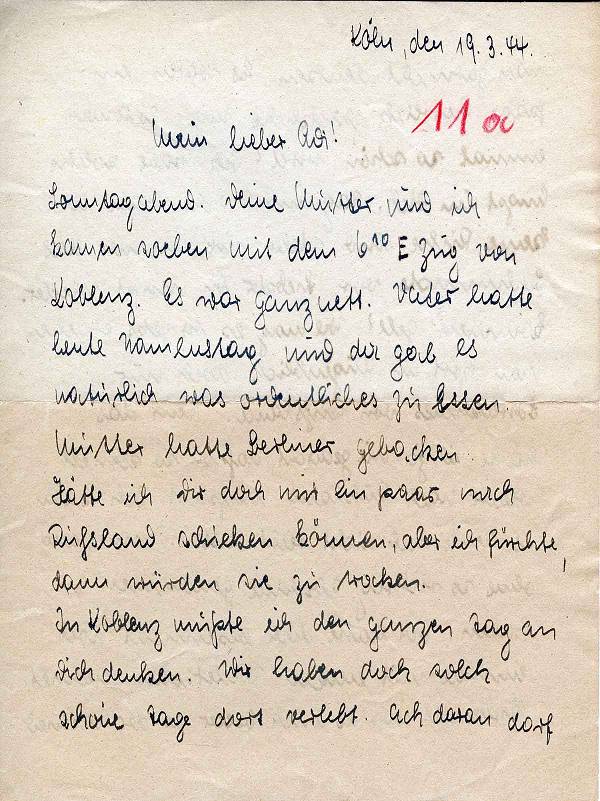 Köln, den 19.3.44.
11 a
Mein lieber Adi!
Sonntagabend. Deine Mutter und ich
kamen soeben mit dem 6¹⁰ E Zug von
Koblenz. Es war ganz nett. Vater hatte
heute Namenstag und da gab es
natürlich was ordentliches zu Essen.
Mutter hatte Berliner gebacken.
Hätte ich Dir doch nur ein paar nach
Rußland schicken können, aber ich fürchte,
dann würden sie zu trocken.
In Koblenz mußte ich den ganzen Tag an
Dich denken. Wir haben doch solch
schöne Tage dort verlebt. Ach daran darf